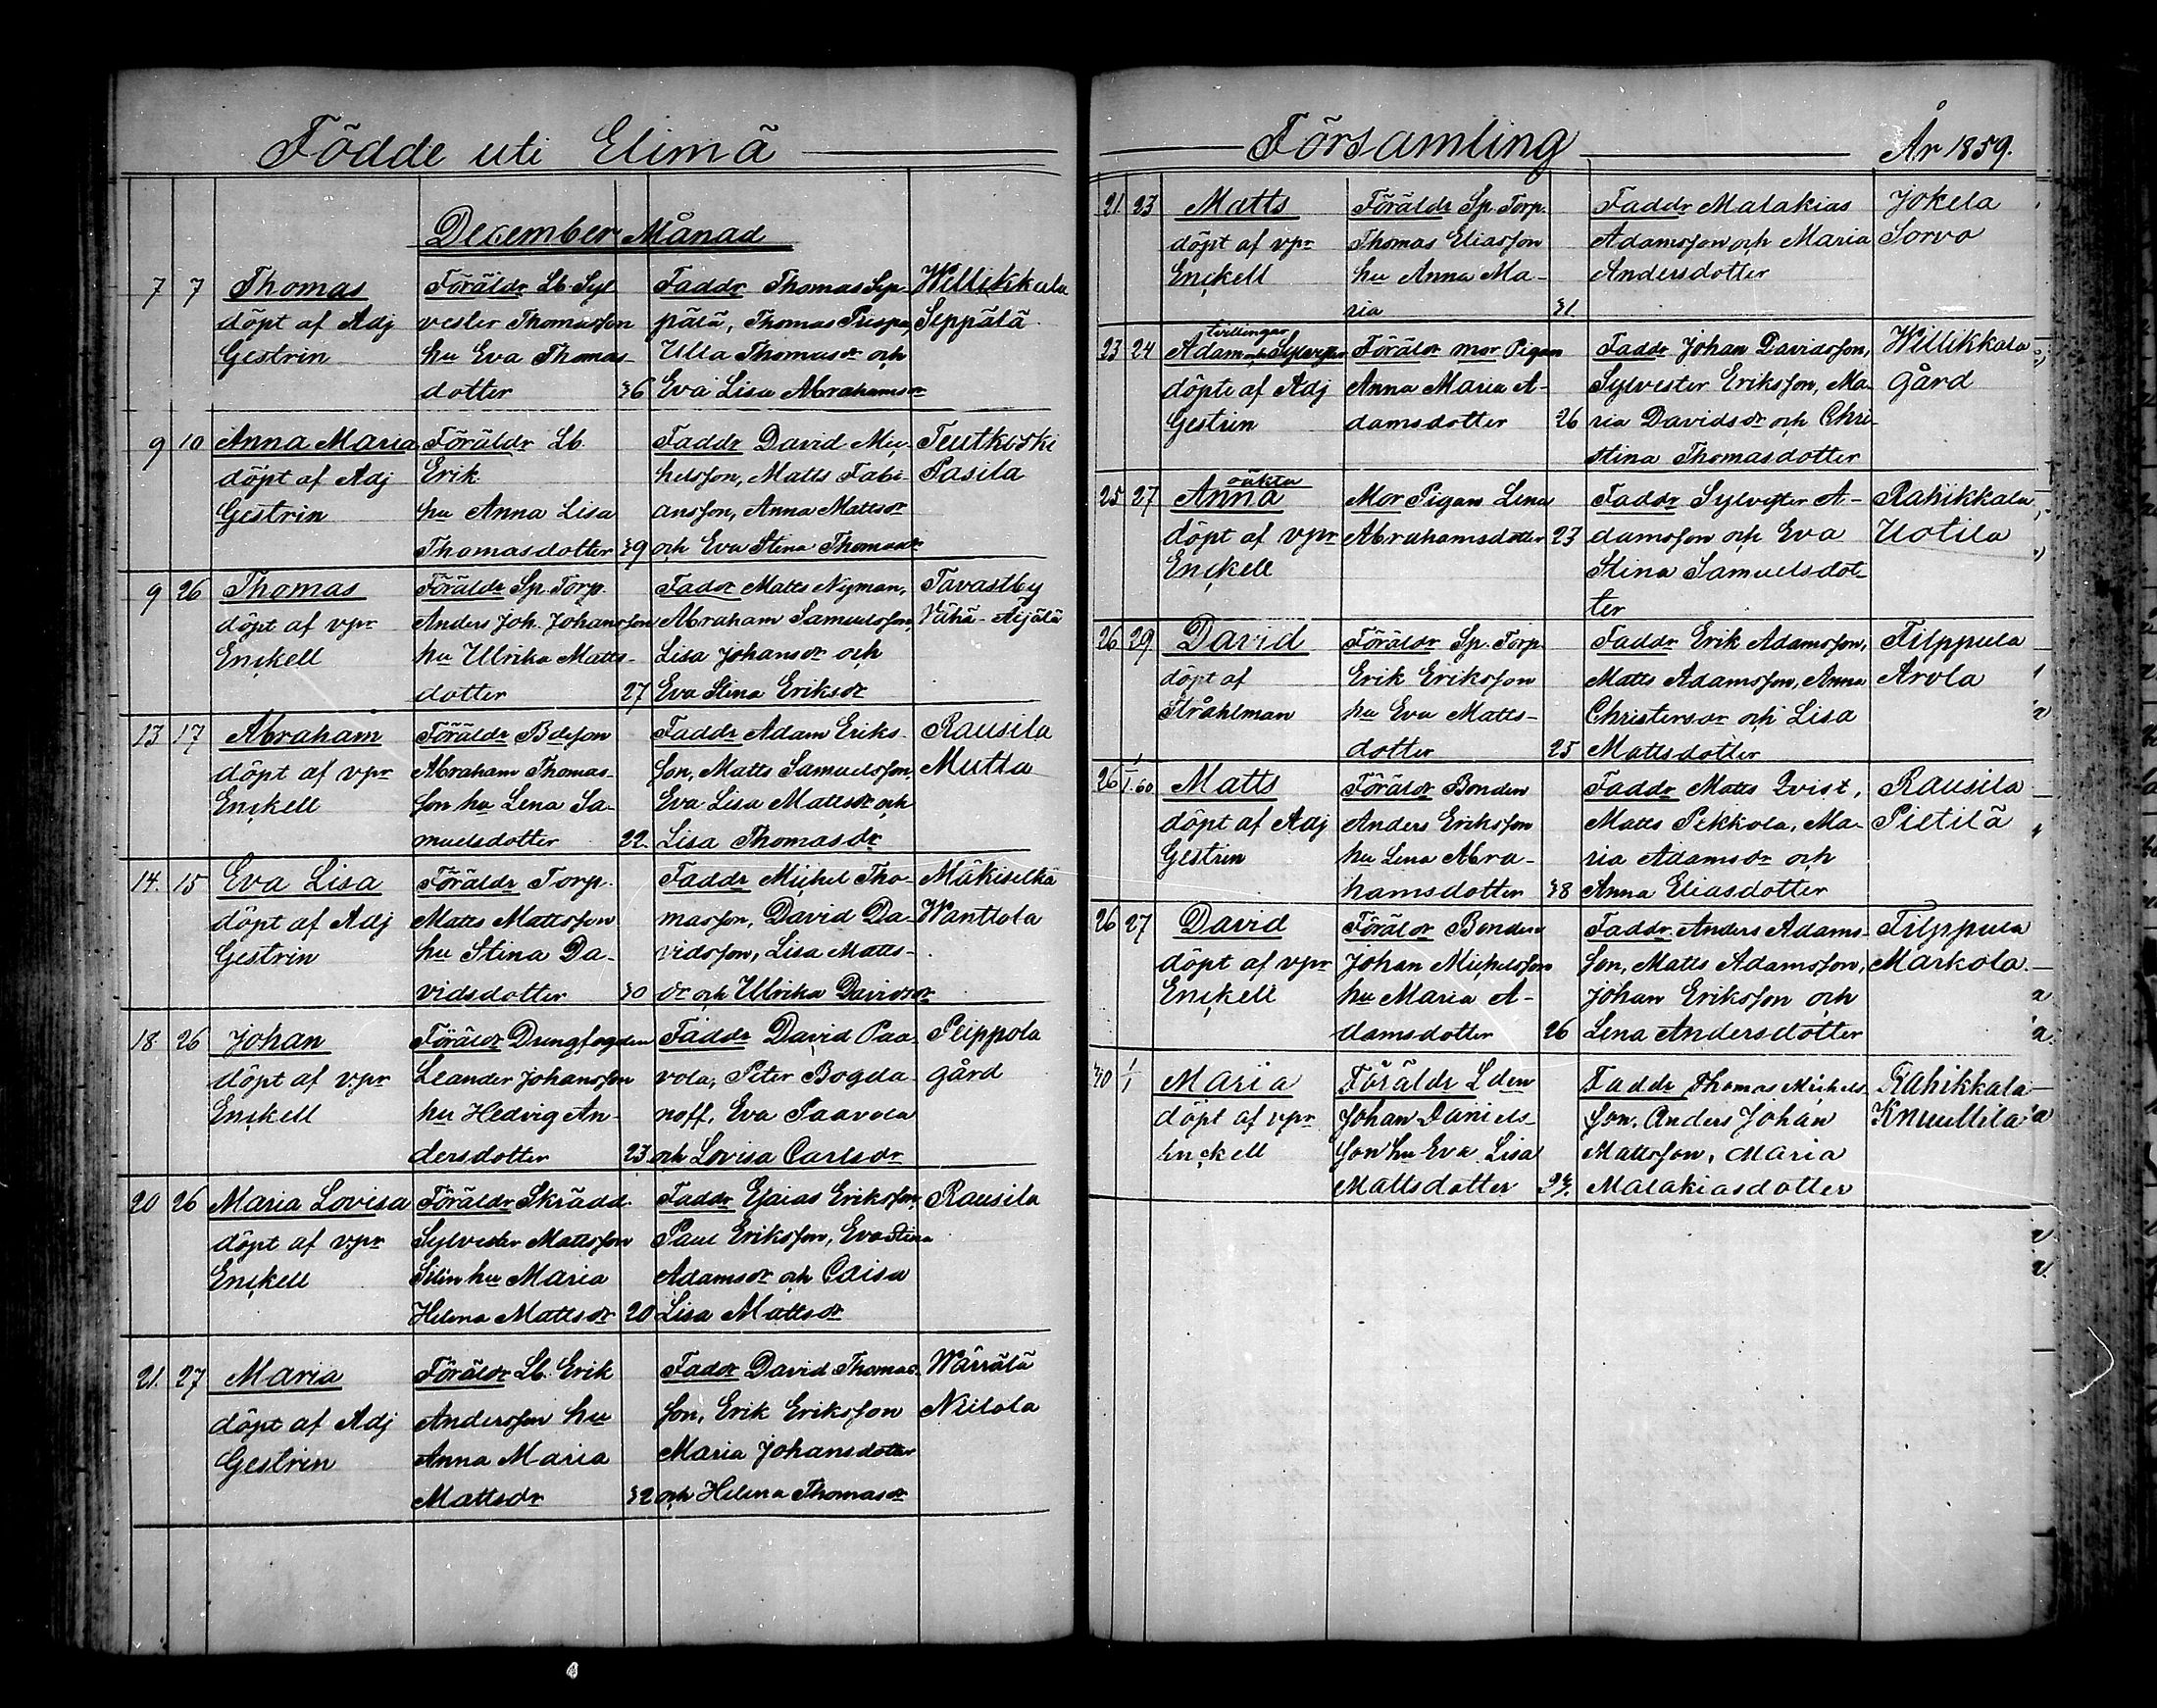 Födde uti Elimä
December Månad
7 7 Thomas Föräldr Lb. Syl Faddr Thomas Sep- Willikkala
döpt af Adj vester Thomasson pälä, Thomas Prispa, Seppälä
Gestrin hu Eva Thomas- Ulla Thomasdr och
dotter 36 Eva Lisa Abrahamsdr
9 10 Anna Maria Föräldr Lb. Faddr David Mic- Teutkoski
döpt af Adj Erik helsson, Matts Fabi- Pasila
Gestrin hu Anna Lisa ansson, Anna Mattsdr
Thomasdotter 39 och Eva Stina Thomasdr
9 26 Thomas Föräldr Sp. Torp. Faddr Matts Nyman, Tavastby
döpt af vpr Anders Joh. Johansson Abraham Samuelsson, Vähä-Äijälä
Enckell hu Ulrika Matts- Lisa Johansdr och
dotter 27 Eva Stina Eriksdr
13 17 Abraham Föräldr Bdeson Faddr Adam Eriks- Rausila
döpt af vpr Abraham Thomas- son, Matts Samuelsson, Mutta
Enckell son hu Lena Sa- Eva Lisa Mattsdr och
muelsdotter 22. Lisa Thomasdr
14. 15 Eva Lisa Föräldr Torp. Faddr Michel Tho- Mäkiselkä
döpt af Adj Matts Mattsson masson, David Da- Wanttola
Gestrin hu Stina Da- vidsson, Lisa Matts-
vidsdotter 30 dr och Ulrika Davidsdr
18. 26 Johan Föräldr Drengfogden Faddr David Paa- Peippola
döpt af vpr Leander Johansson vola, Peter Bogda- gård
Enckell hu Hedvig An- noff, Eva Paavola
dersdotter 23. och Lovisa Carlsdr
20 26 Maria Lovisa Föräldr Skrädd. Faddr Esaias Eriksson, Rausila
döpt af vpr Sylvester Mattsson Paul Eriksson, Eva Stina
Enckell Silin hu Maria Adamsdr och Caisa
Helena Mattsdr 20 Lisa Mattsdr
21. 27 Maria Föräldr Lb. Erik Faddr David Thomas- Wärrälä
döpt af Adj Andersson hu son, Erik Eriksson Niilola
Gestrin Anna Maria Maria Johansdotter
Mattsdr 32 och Helena Thomasdr
Församling År 1859.
21 23 Matts Föräldr Sp. Torp. Faddr Malakias Jokela
döpt af vpr Thomas Eliasson Adamsson och Maria Sorvo
Enckell hu Anna Ma- Andersdotter
ria 31
tvillingar
23 24 Adam och Sylvester Föräldr mor Pigan Faddr Johan Davidsson, Willikkala
döpte af Adj Anna Maria A- Sylvester Eriksson, Ma- gård
Gestrin damsdotter 26 ria Davidsdr och Chri-
stina Thomasdotter
oäkta
25 27 Anna Mor Pigan Lena Faddr Sylvester A- Rahikkala
döpt af vpr Abrahamsdotter 23 damsson och Eva Uotila
Enckell Stina Samuelsdot-
ter
26 29 David Föräldr Sp. Torp. Faddr Erik Adamsson, Filppula
döpt af Erik Eriksson Matts Adamsson, Anna Arola
Stråhlman hu Eva Matts- Christersdr och Lisa
dotter 25 Mattsdotter
26 1/1.60 Matts Föräldr Bonden Faddr Matts Qvist, Rausila
döpt af Adj Anders Eriksson Matts Pekkola, Ma- Pietilä
Gestrin hu Lena Abra- ria Adamsdr och
hamsdotter 38 Anna Eliasdotter
26 27 David Föräldr Bonden Faddr Anders Adams- Filppula
döpt af vpr Johan Michelsson son, Matts Adamsson, Markola.
Enckell hu Maria A- Johan Eriksson och
damsdotter 26 Lena Andersdotter
30 1/1 Maria Föräldr Lden Faddr Thomas Michels- Rahikkala
döpt af vpr Johan Daniels- son, Anders Johan Knuuttila
Enckell son hu Eva Lisa Mattsson, Maria
Mattsdotter Malakiasdotter